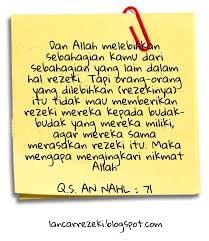 Dan Allah melebihkan
sebahagian kamu dari
sebahagian yang lain dalam
hal rezeki. Tapi orang-orang
yang dilebihkan (rezekinya)
itu tidak mau memberikan
rezeki mereka kepada budak-
budak yang mereka miliki,
agar mereka sama
merasakan rezeki itu. Maka
mengapa mengingkari nikmat
Allah
Q.S. AN NAHL : 71
lancarrezeki.blogspot.com